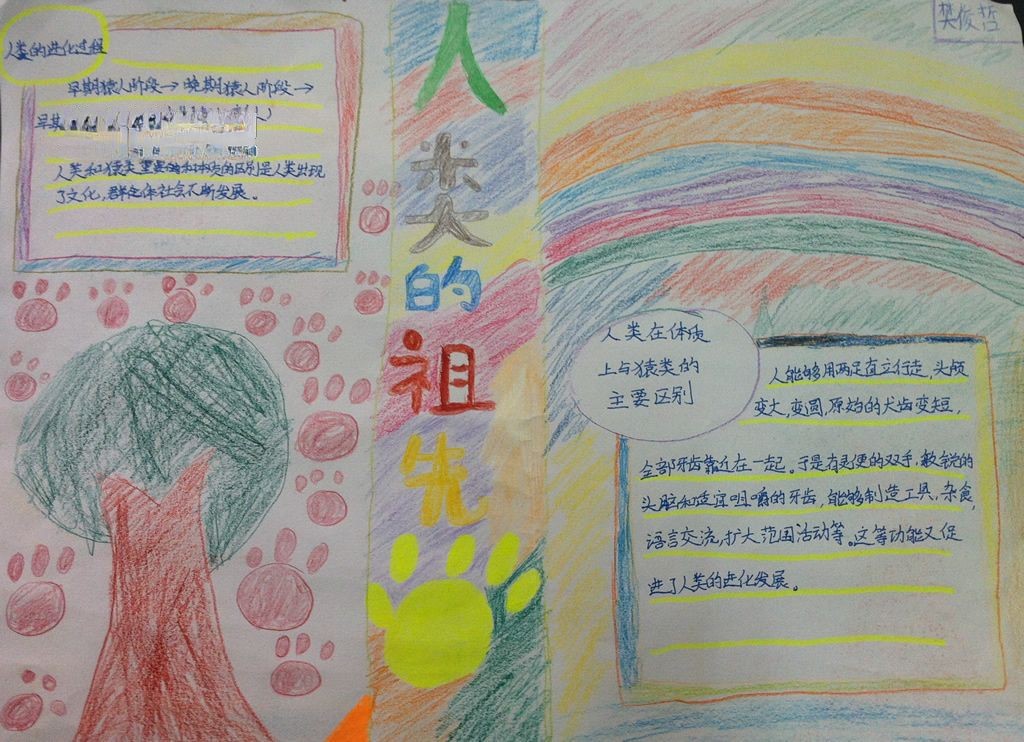 人类的进化过程
早期猿人阶段→晚期猿人阶段→
早其
人类和猿类重要的和本质的区别是人类出现
了文化,群定体社会不断发展。
人类的祖先
樊俊哲
人类在体质
上与猿类的
主要区别
人能够用两足直立行走,头颅
变大,变圆,原始的犬齿变短,
全部牙齿靠近在一起。于是有灵便的双手,敏锐的
头脑和适宜咀嚼的牙齿,能够制造工具,杂食,
语言交流,扩大范围活动等。这等功能又促
进了人类的进化发展。